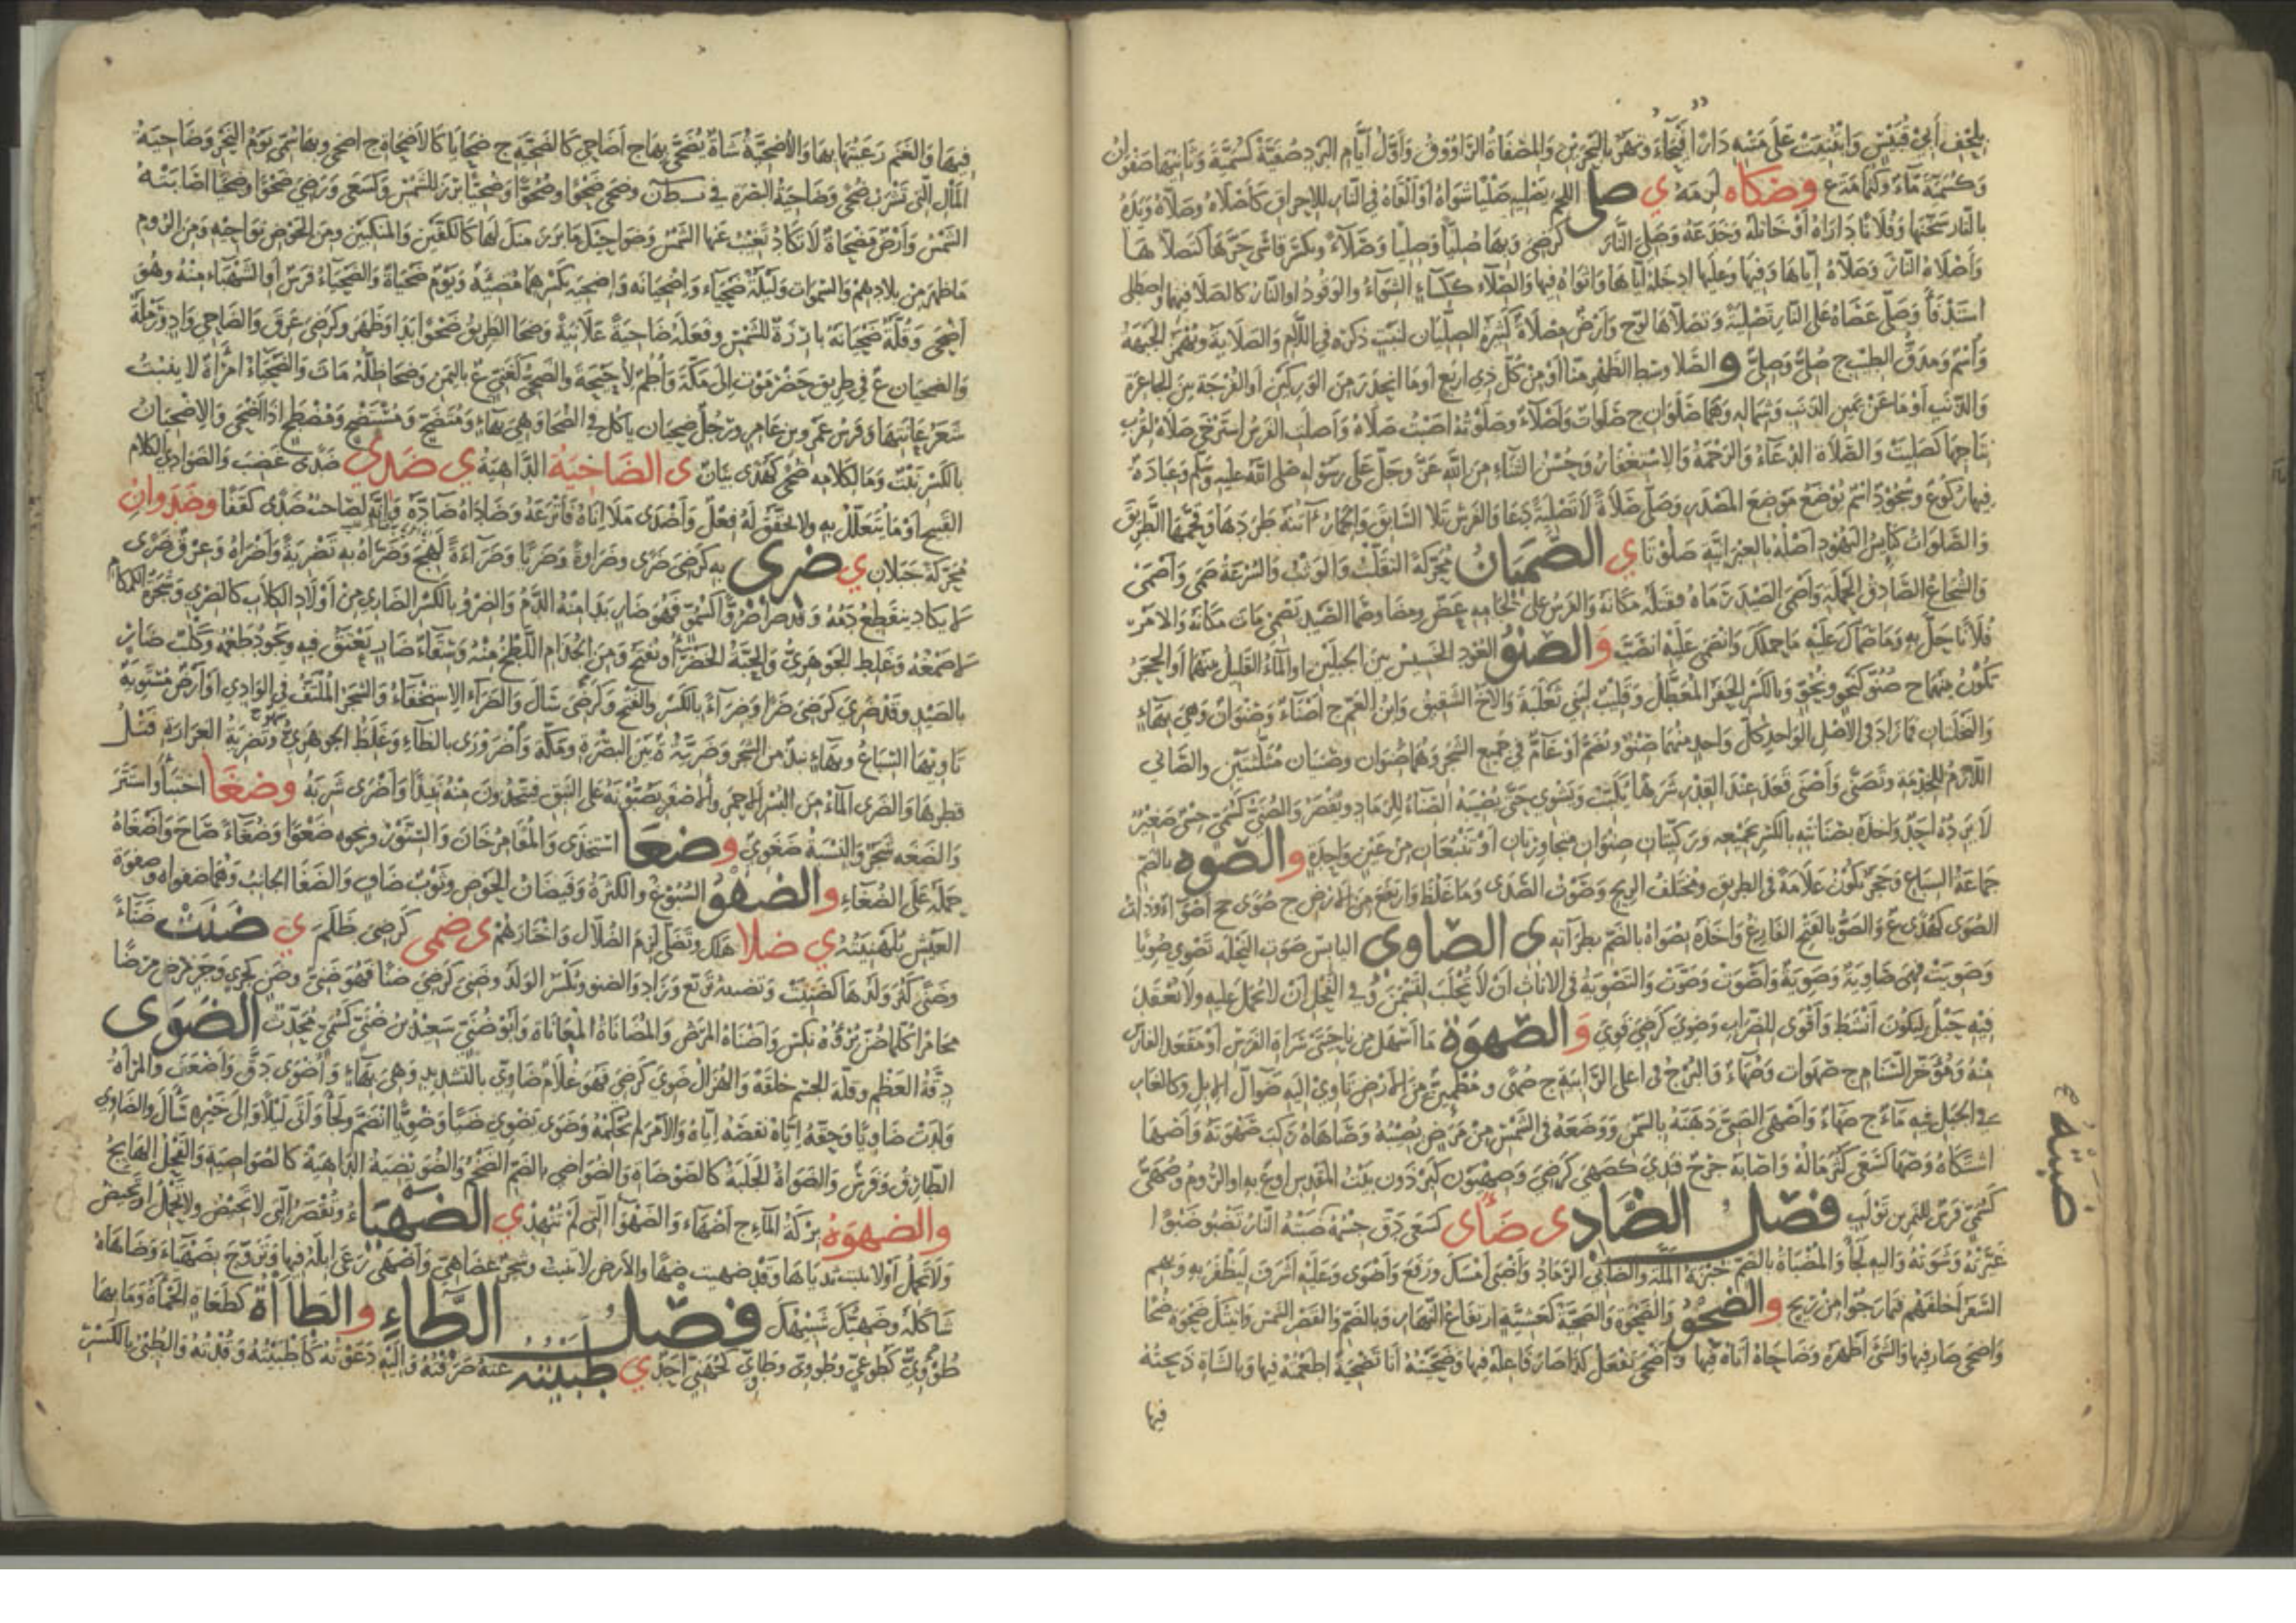 وكسمية ماءة وكلها مة ع وضكاه لزمه ي صلى اللحم يصليه صليا شواه أو ألقاه في النار للإحراق كأصلاه وصلاه ويده
بالنار سخنها وفلانا داراه أو خاتله وخدعه وصلى النار كرضي وبها صليا وصليا وصلاء ويكسر قاسى حرها كتصلاها
وأصلاه النار وصلاه إياها وفيها وعليها أدخله إياها وأثواه فيها والصلاء ككساء الشواء والوقود أو النار كالصلا فيهما واصطلى
استدفأ وصلى عصاه على النار تصلية وتصلاها لوح وأرض مصلاة كثيرة الصليان لنبت ذكره في اللام والصلاية ويهمز الجبهة
واسم ومدق الطيب ج صلي وصلي و الصلا وسط الظهر منا أو من كل ذي أربع أو ما انحدر من الوركين أو الفرجة بين الجاعرة
والذنب أو ما عن يمين الذنب وشماله وهما صلوان ج صلوات وأصلاء وصلوته أصبت صلاه وأصلت الفرس استرخى صلاها لقرب
نتاجها كصليت والصلاة الدعاء والرحمة والاستغفار وحسن الثناء من الله عز وجل على رسوله صلى الله عليه وسلم وعبادة
فيها ركوع وسجود اسم يوضع موضع المصدر وصلى صلاة لا تصلية دعا والفرس تلا السابق والحمار أتنه طردها وقحمها الطريق
والصلوات كنائس اليهود أصله بالعبرانية صلوتا ي الصميان محركة التقلب والوثب والسرعة صمى وأصمى
والشجاع الصادق الحملة وأصمى الصيد رماه فقتله مكانه والفرس على لجامه عض ومضى وصما الصيد يصمي مات مكانه والأمر
فلانا حل به وما صماك عليه ما حملك وانصمى عليه انصب والصنو العود الخسيس بين الجبلين أو الماء القليل بينهما أو الحجر
يكون بينهما ج صنو كنحو ونحو وبالكسر الحفر المعطل وقليب لبني ثعلبة والأخ الشقيق والابن العم ج أصناء وصنوان وهي بهاء
والنخلتان فما زاد في الأصل الواحد كل واحد منهما صنو ويضم أو عام في جميع الشجر وهما صنوان وصنيان مثلثتين والصاني
اللازم للخدمة وتصنى وأصنى قعد عند القدر شرها يكبب ويشوي حتى يصيبه الصناء للرماد ويقصر والصني كسمي حسي صغير
لا يرده أحد وأخذه بصنايته بالكسر بجميعه وركيتان صنوان متجاورتان أو تنبعان من عين واحدة والصوة بالضم
جماعة السباع وحجر يكون علامة في الطريق ومختلف الريح وصوت الصدى وما غلظ وارتفع من الأرض ج صوى جج أصواء وذات
الصوى كهدى ع والصو بالفتح الفارغ وأخذه بصواه بالضم بطراءته ى الصاوى اليابس صوت النخلة تصوي صويا
وصويت فهي صاوية وصوية وأصوت وصوت والتصوية في الإناث أن لا تحلب لتسمن وفي الفحل أن لا يحمل عليه ولا يعقد
فيه حبل ليكون أنشط وأقوى للضراب وصوي كرضي قوي والصهوة ما أسهل من ناحيتي سراة الفرس أو مقعد الفارس
منه ومؤخر السنام ج صهوات وصهاء والبرج في أعلى الرابية ج صهى ومطمئن من الأرض تأوي إليه ضوال الإبل وكالغار
في الجبل فيه ماء ج صهاء وأصهى الصبي دهنه بالسمن ووضعه في الشمس من مرض يصيبه وصاهاه ركب صهوته وأصهى
اشتكاه وصها كسعى كثر ماله وأصابه جرح فندي كصهي كرضي وصهيون كبرذون بيت المقدس أو ع به أو الروم وصهى
كسمي فرس للنمر بن تولب فصل الضاد ى ضأى كسعى دق جسمه ضبته النار تضبو ضبوا
غيرته وشوته وإليه لجأ والمضباة بالضم خبزة الملة والضابي الرماد وأضبى أمسك ورفع وأضوى وعليه أشرف ليظفر به وبهم
السفر أخلفهم فما رجوا من ربح والضحو والضحوة والضحية كعشية ارتفاع النهار وبالضم والقصر الشمس وأتيتك ضحوة ضحا
وأضحى صار فيها والشيء أظهره وضاحاه أتاه فيها وأضحى يفعل كذا صار فاعله فيها وضحيته أنا تضحية أطعمته فيها وبالشاة ذبحته
فيها
ضبته
فيها والغنم رعيتها بها والأضحية شاة يضحى بها ج أضاحي كالضحية ج ضحايا كالأضحاة ج أضحى وبها سمي يوم النحر وضاحية
المال التي تشرب ضحى وضاحية البصرة في سطان وضحى ضحوا وضحوا وضحيا برز للشمس وكسعى ورضي ضحوا وضحيا أصابته
الشمس وأرض مضحاة لا تكاد تغيب عنها الشمس وضواحيك ما برز منك لها كالكتفين والمنكبين ومن الحوض نواحيه ومن الروم
ما ظهر من بلادهم والسموات وليلة ضحياء وإضحيانة وإضحية بكسرهما مضيئة ويوم ضحياة والضحياء فرس أو الشهباء منه وهو
أضحى وقلة ضحيانة بارزة للشمس وفعله ضاحية علانية وضحا الطريق ضحوا بدا وظهر وكرضي عرق والضاحي واد ورملة
والضحيان ع في طريق حضرموت إلى مكة وأطم لأحيحة والضحي كغني ع باليمن وضحا ظله مات والضحياء امرأة لا ينبت
شعر عانتها وفرس عمرو بن عامر ورجل ضحيان يأكل في الضحا وهي بهاء ومتضح ومستضح ومضطح إذا أضحى والإضحيان
بالكسر نبت وما لكلامه ضحى كهدى بيان ى الضاخية الداهية ي ضدي ضدى غضب والضوادي الكلام
القبيح أو ما يتعلل به ولا يحقق له فعل وأضدى ملأ إناه فأترعه وضاداه ضاده وإنه لصاحب ضدى كقفا وضدوان
محركة جبلان ي ضرى به كرضي ضرى وضراوة وضريا وضراءة لهج وضراه به تضرية وأضراه وعرق ضري
لا يكاد ينقطع دمه وقد ضرا ضروا كسمو فهو ضار بدا منه الدم والضرو بالكسر الضاري من أولاد الكلاب كالضري وشجرة الكمكام
لا صمغه وغلط الجوهري والحبة الخضراء ويفتح ومن الجذام اللطخ منه وسقاء ضار يعتق فيه ويجود طعمه وكلب ضار
بالصيد وقد ضري كرضي ضرا وضراء بالكسر والفتح وكرمى سال والضراء الاستخفاء والشجر الملتف في الوادي أو أرض مستوية
تأويها السباع وبها نبذ من الشجر وضرية ة بين البصرة ومكة واضرورى بالظاء وغلط الجوهري وتضرية الغرارة فتل
قطرها والضرى الماء من البسر الأحمر والأصفر يصبونه على النبق فيتخذون منه نبيذا وأضرى شربه وضغا اختبأ واستتر
والضعة شجر والنسبة ضعوي وضغا استخذى والمقامر خان والسنور ونحوه ضغوا وضغاء صاح وأضغاه
حمله على الضغاء والضفو السبوغ والكثرة وفيضان الحوض وثوب ضاف والضفا الجانب وهما ضفواه وضفوة
العيش بلهنيته ي ضلا هلك وتضلى لزم الضلال واختارهم ى ضمى كرضي ظلم ي ضنت ضناء
وضنى كثر ولدها كضنيت والضنو ويكسر الولد وضني كرضي ضنا فهو ضني وضن كحري وحر مرض مرضا
مخامرا كلما ظن برؤه نكس وأضناه المرض والمضاناة المعاناة وأبو ضني سعيد بن ضني كسمي محدث الضوى
دقة العظم وقلة الجسم خلقة والهزال ضوي كرضي فهو غلام ضاوي بالتشديد وهي بهاء وأضوى دق وأضعف والمرأة
ولدت ضاويا وحقه إياه نقصه إياه والأمر لم يحكمه وضوى يضوي ضيا وضويا انضم ولجأ وأتى ليلا وإلى خبره سأل والضاوي
الطارق وفرس والضواة الجلبة كالضوضاة والضواضي بالضم الضخم والضويضية الداهية كالضواضية والفحل الهايج
والضهوة بركة الماء ج أضهاء والضهوا التي لم تنهد ي الضهياء وتقصر التي لا تحيض ولا تحمل أو تحيض
ولا تحمل أو لا ينبت ثدياها وقد ضهيت ضها والأرض لا تنبت وشجر عضاهي وأضهى رعى إبله فيها وتزوج بضهياء وضاهاه
شاكله وضهيك شبيهك فصل الطاء والطاأة كطعاة الحمأة وما بها
طوئي كطوعي وطووي وطاوي كجهني أحد ي طبيته عنه صرفته وإليه دعوته كأطبيته وقدته والطبي بالكسر